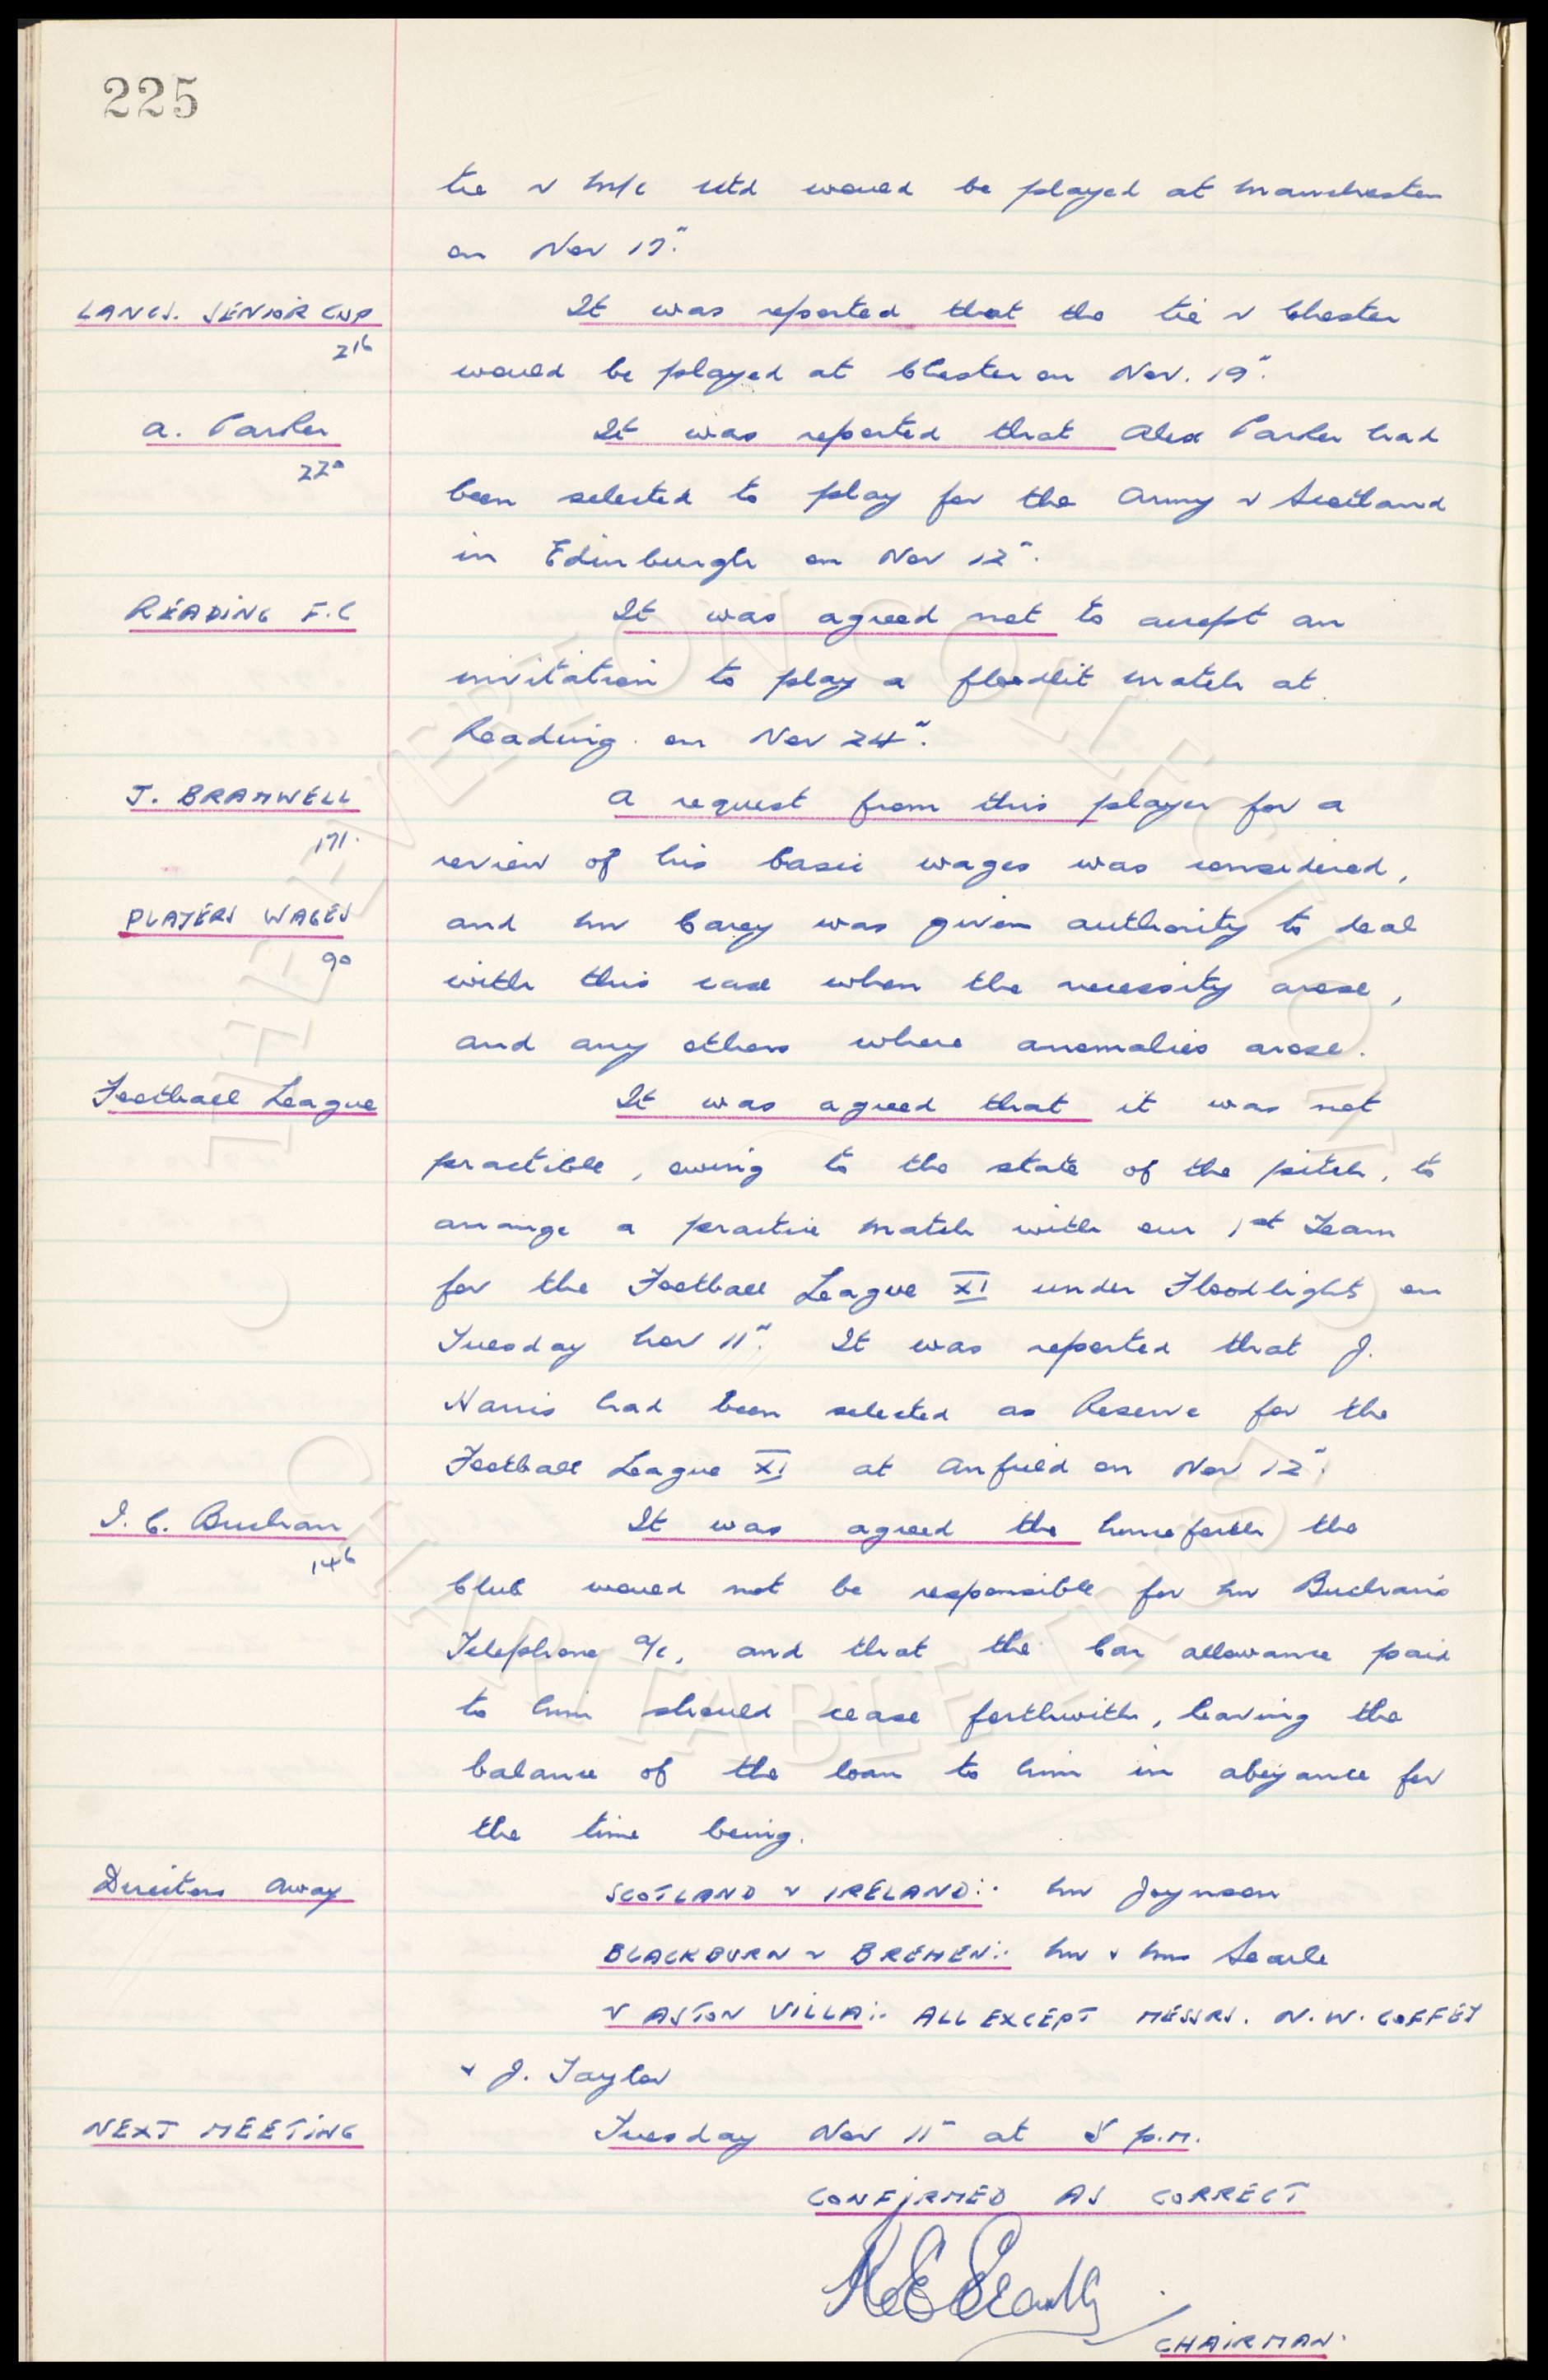 225
tie v M/c Utd would be played at Manchester
on Nov 17".
LANCS. SENIOR CUP
216
It was reported that the tie v Chester
would be played at Chester on Nov. 19".
A. Parker
220
It was reported that Alex Parker had
been selected to play for the Army v Scotland
in Edinburgh on Nov 12".
READING F.C
It was agreed not to accept an
invitation to play a floodlit match at
Reading on Nov 24".
J. BRAMWELL
171.
A request from this player for a
review of his basic wages was considered,
PLAYERS WAGES
90
and Mr Carey was given authority to deal
with this case when the necessity arose,
and any others where anomalies arose.
Football League
It was agreed that it was not
practible, owing to the state of the pitch, to
arrange a practice match with our 1st Team
for the Football League XI under Floodlights on
Tuesday Nov 11". It was reported that J.
Harris had been selected as Reserve for the
Football League XI at Anfield on Nov 12".
I. C. Buchan
146
It was agreed the henceforth the
Club would not be responsible for Mr Buchan's
Telephone a/c, and that the Car allowance paid
to him should cease forthwith, leaving the
balance of the loan to him in abeyance for
the time being.
Directors Away
SCOTLAND v IRELAND:- Mr Joynson
BLACKBURN v BREMEN:- Mr & Mrs Searle
v ASTON VILLA:- ALL EXCEPT MESSRS. N. W. COFFEY
& J. Taylor
NEXT MEETING
Tuesday Nov 11" at 5 p.m.
CONFIRMED AS CORRECT
CHAIRMAN.
THE EVERTON COLLECTION
CHARITABLE TRUST